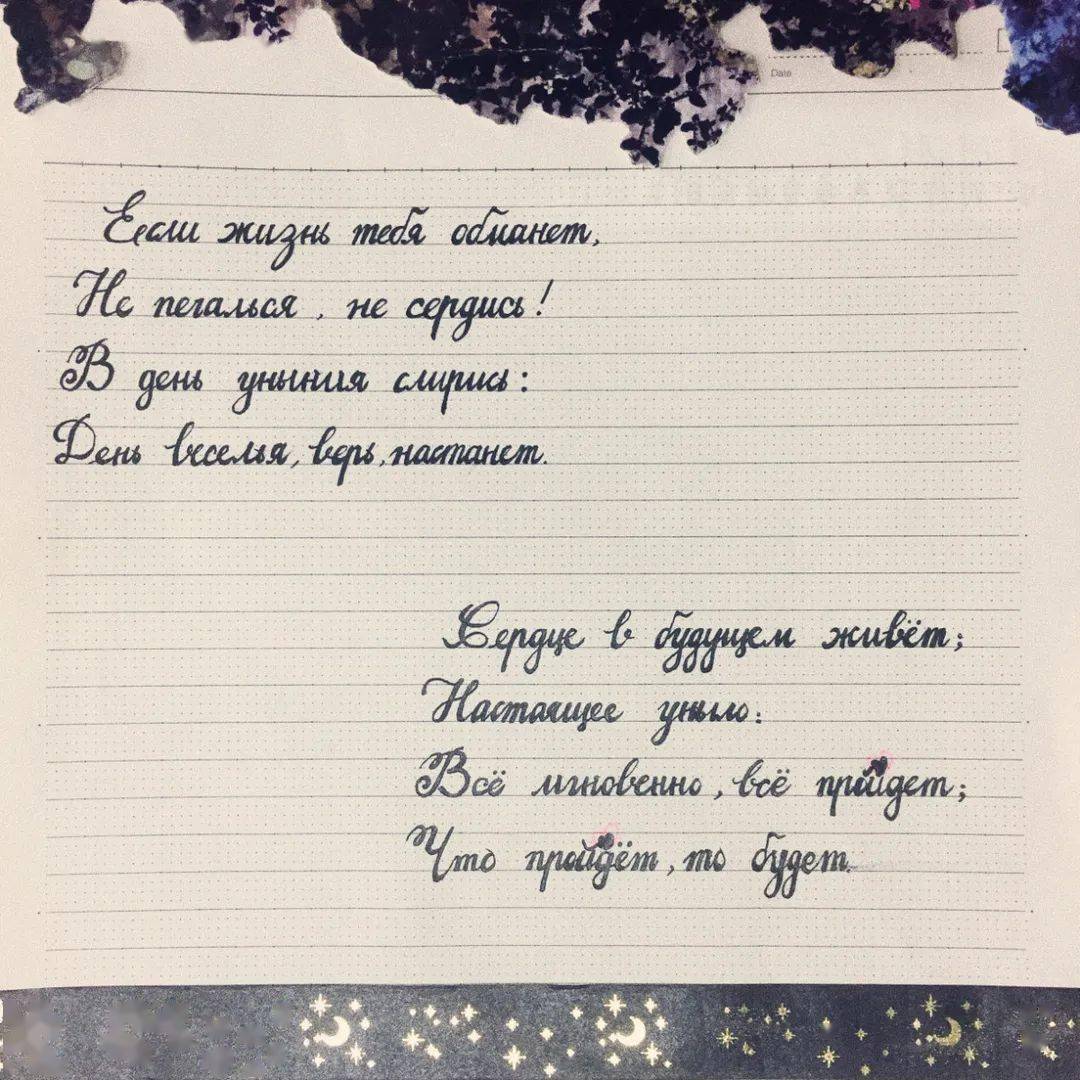 Date
Если жизнь тебя обманет,
Не печалься, не сердись!
В день уныния смирись:
День веселья, верь, настанет.
Сердце в будущем живёт;
Настоящее уныло:
Всё мгновенно, всё пройдет;
Что пройдёт, то будет.